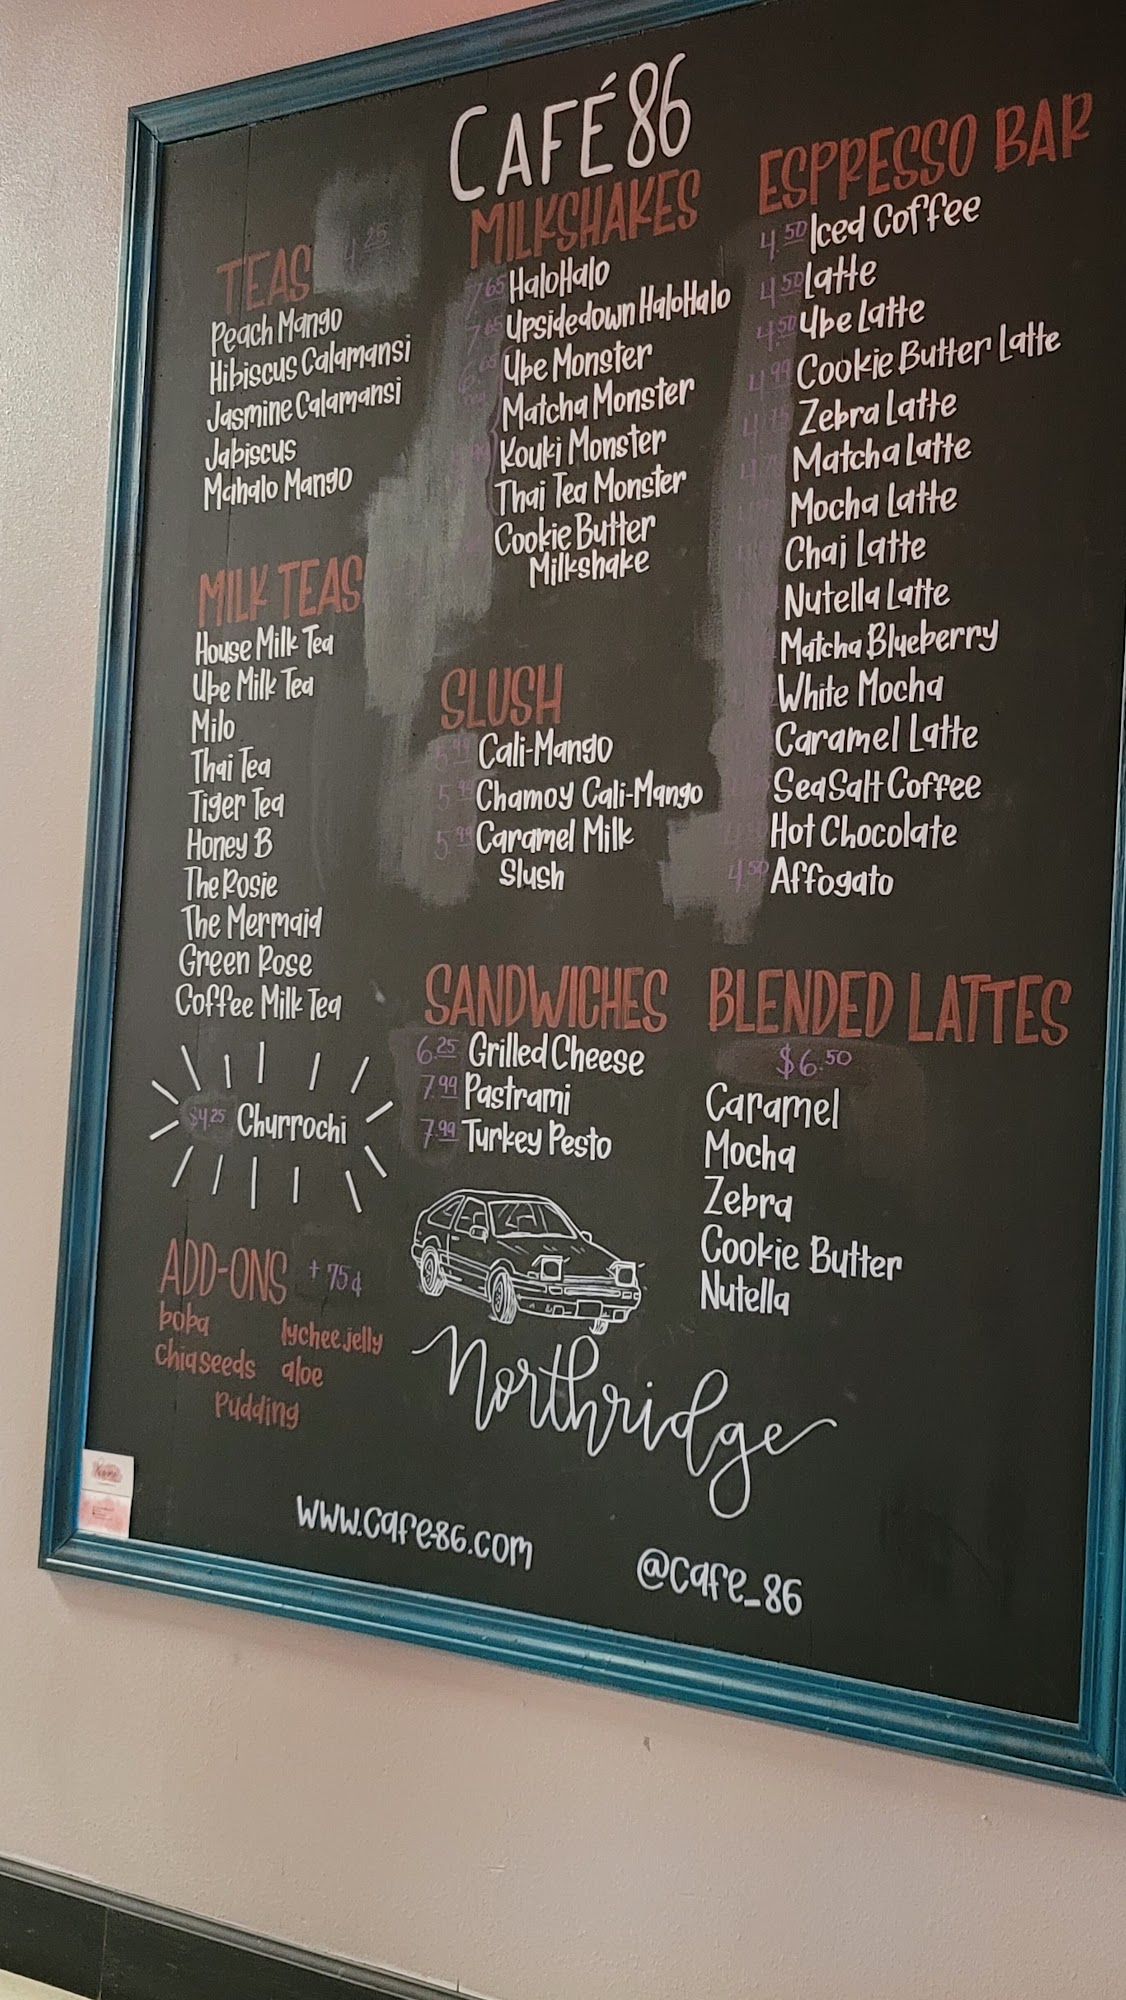 CAFÉ 86
TEAS 4.25
Peach Mango
Hibiscus Calamansi
Jasmine Calamansi
Jabiscus
Mahalo Mango
MILK TEAS
House Milk Tea
Ube Milk Tea
Milo
Thai Tea
Tiger Tea
Honey B
The Rosie
The Mermaid
Green Rose
Coffee Milk Tea
$4.25 Churrochi
ADD-ONS +75¢
boba lychee jelly
chia seeds aloe
Pudding
MILKSHAKES
7.65 HaloHalo
7.65 Upsidedown HaloHalo
Ube Monster
Matcha Monster
Kouki Monster
Thai Tea Monster
Cookie Butter
Milkshake
SLUSH
5.99 Cali-Mango
5.99 Chamoy Cali-Mango
5.99 Caramel Milk
Slush
SANDWICHES
6.25 Grilled Cheese
7.99 Pastrami
7.99 Turkey Pesto
ESPRESSO BAR
4.50 Iced Coffee
4.50 Latte
4.50 Ube Latte
4.99 Cookie Butter Latte
Zebra Latte
Matcha Latte
Mocha Latte
Chai Latte
Nutella Latte
Matcha Blueberry
White Mocha
Caramel Latte
SeaSalt Coffee
Hot Chocolate
4.50 Affogato
BLENDED LATTES
$6.50
Caramel
Mocha
Zebra
Cookie Butter
Nutella
Northridge
www.cafe-86.com
@cafe_86